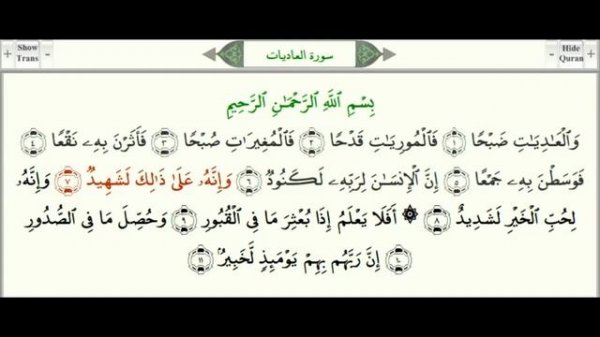 Show
Trans
سورة العاديات
Hide
Quran
بِسْمِ ٱللَّهِ ٱلرَّحْمَـٰنِ ٱلرَّحِيمِ
وَٱلْعَـٰدِيَـٰتِ ضَبْحًا ١ فَٱلْمُورِيَـٰتِ قَدْحًا ٢ فَٱلْمُغِيرَٰتِ صُبْحًا ٣ فَأَثَرْنَ بِهِۦ نَقْعًا ٤
فَوَسَطْنَ بِهِۦ جَمْعًا ٥ إِنَّ ٱلْإِنسَـٰنَ لِرَبِّهِۦ لَكَنُودٌ ٦ وَإِنَّهُۥ عَلَىٰ ذَٰلِكَ لَشَهِيدٌ ٧ وَإِنَّهُۥ
لِحُبِّ ٱلْخَيْرِ لَشَدِيدٌ ٨ ۞ أَفَلَا يَعْلَمُ إِذَا بُعْثِرَ مَا فِى ٱلْقُبُورِ ٩ وَحُصِّلَ مَا فِى ٱلصُّدُورِ
١٠ إِنَّ رَبَّهُم بِهِمْ يَوْمَئِذٍ لَّخَبِيرٌۢ ١١